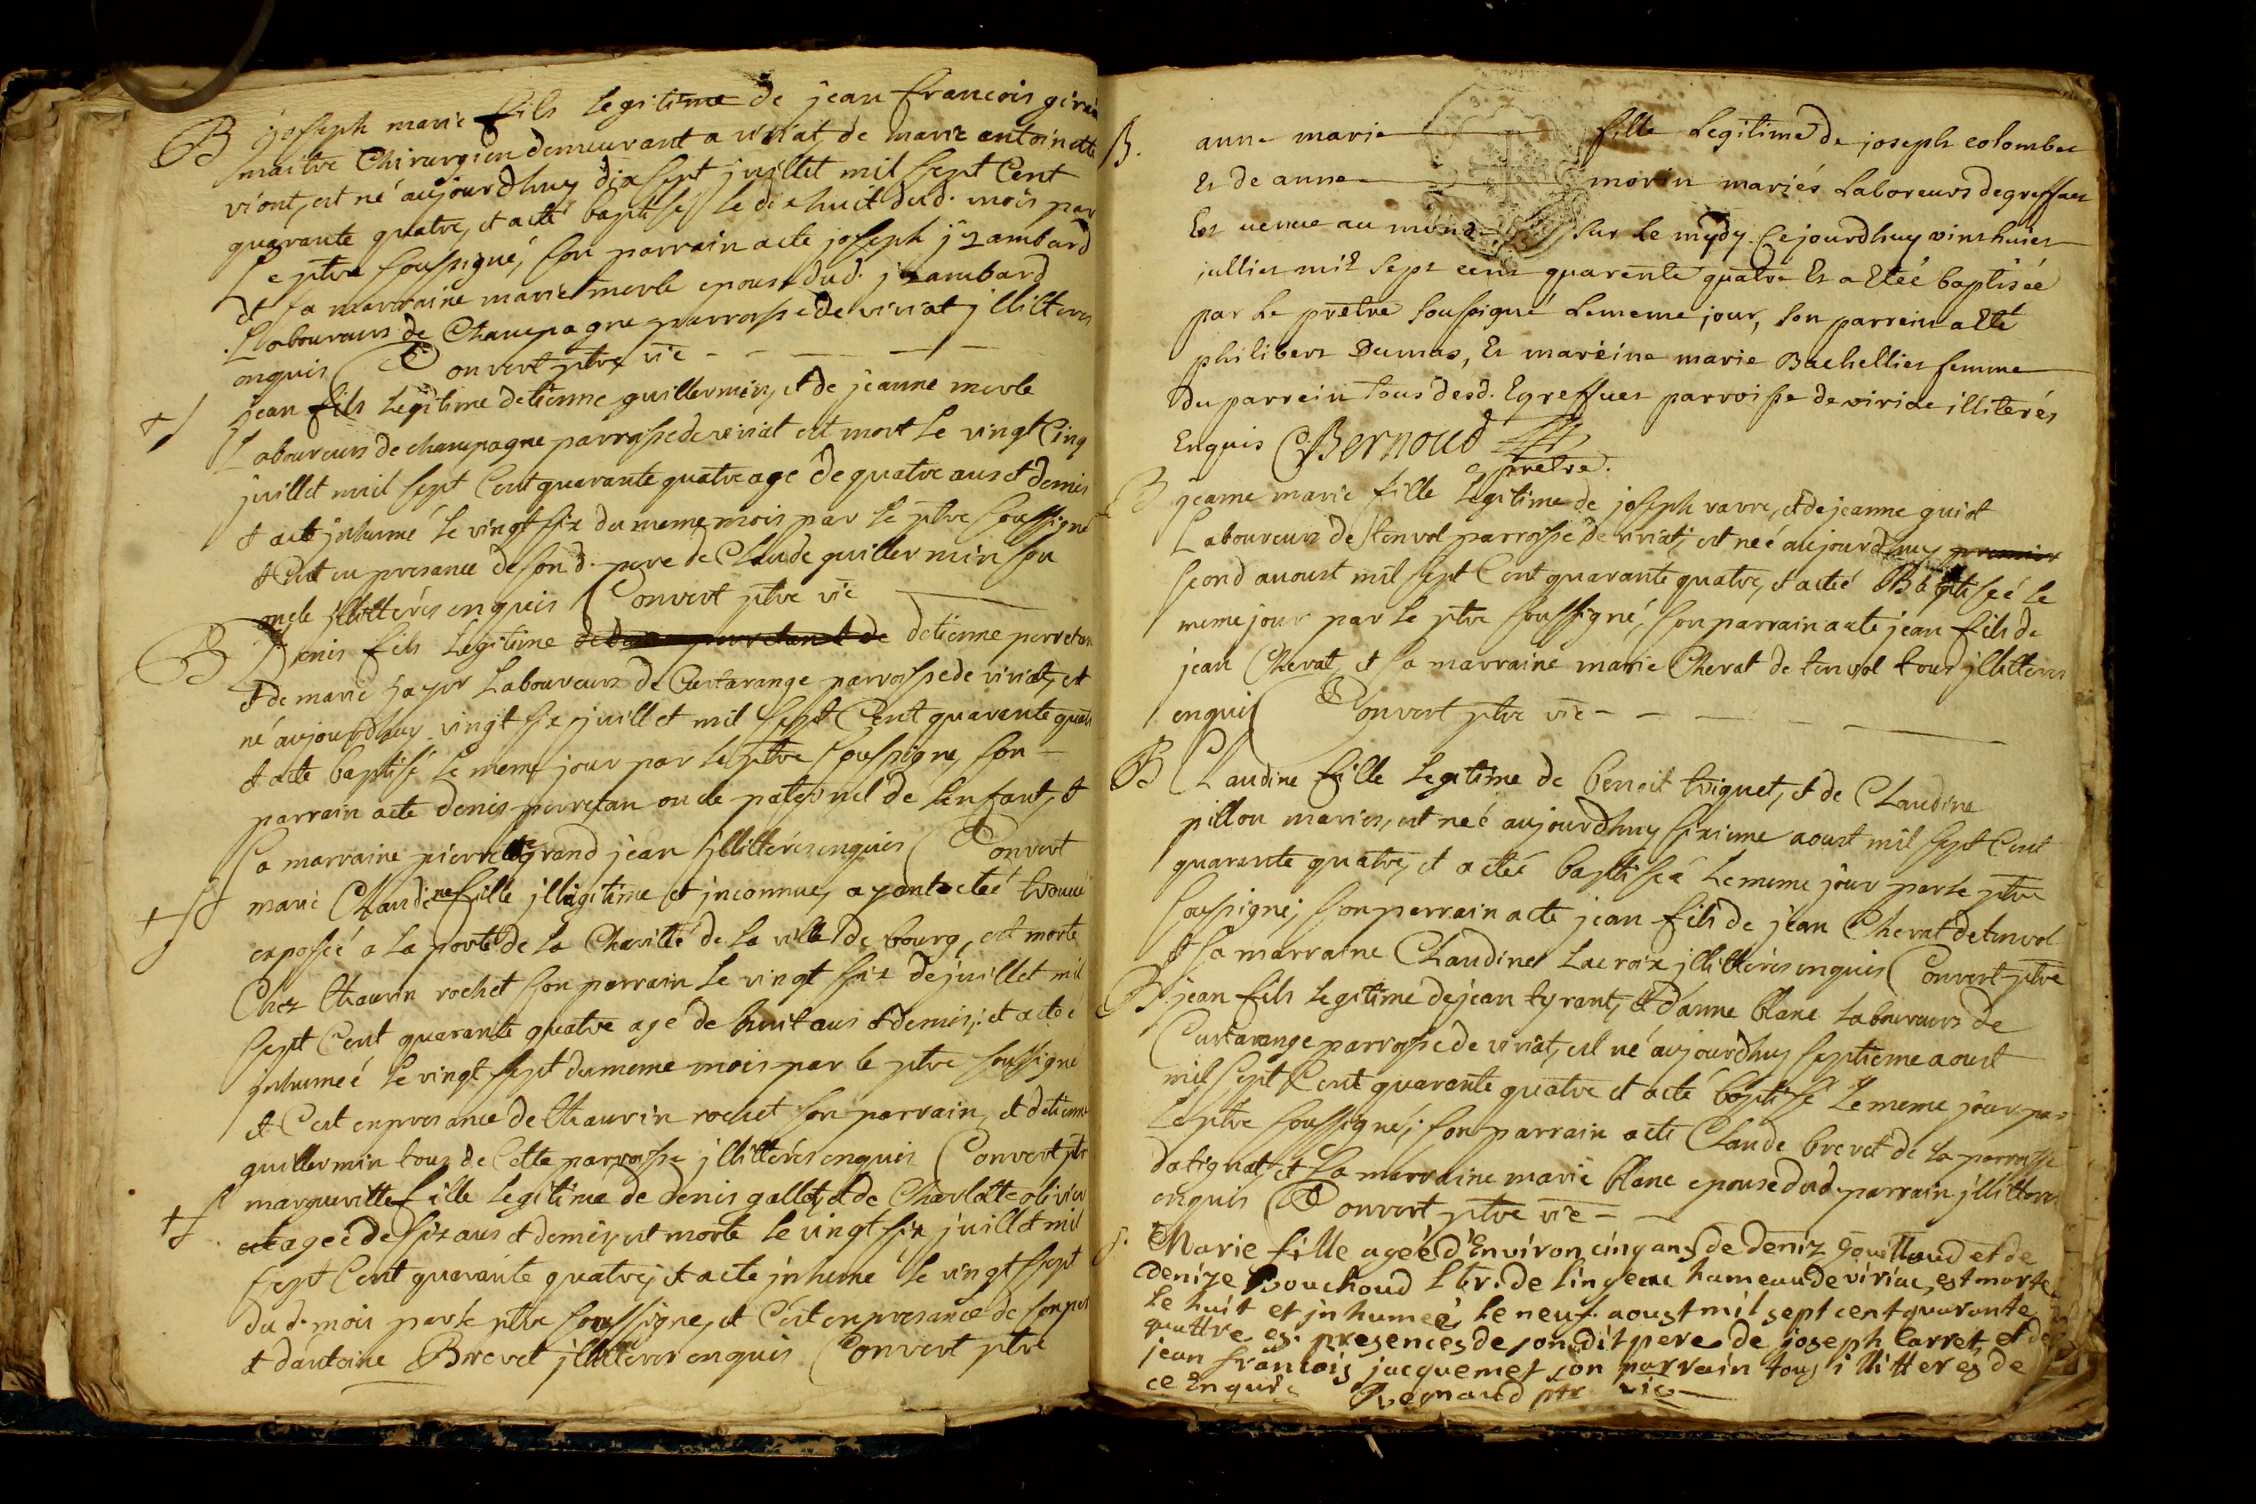 B joseph marie fils legitime de jean francois
maitre Chirurgien demeurant a viriat, de marie antoinette
viont, est né aujourdhuy dix sept juillet mil sept Cent
quarante quatre, et aété baptisé le dixhuit dud. mois par
Le ptre soussigné, son parrain aete joseph jzambard
et sa marraine marie merle epouse dud. jzambard
Laboureurs de Champagne parroisse de viriat jllitteres
enquis Convert ptre vic
+ jean fils legitime detienne guillermin, et de jeanne merle
Laboureurs de champagne parroisse de viriat est mort le vingt Cinq
juillet mil sept Cent quarante quatre age de quatre ans et demis
et aete jnhumé le vingt six du meme mois par le ptre soussigné
et C'est en presance de son d. pere de Claude guillermin son
oncle jllitterés enquis Convert ptre vic
B Denis fils legitime detienne perretan
et de marie layor Laboureurs de Curtarange parroisse de viriat, est
né aujourdhuy vingt six juillet mil sept Cent quarante quatre
et aete baptisé le meme jour par le ptre soussigne, son
parrain aete denis perretan oncle paternel de lenfant, et
sa marraine pierrette grand jean jllitterés enquis Convert
+ marie Claudine fille jllegitime et jnconnue, ayant eteé trouveé
exposeé a la porte de la Charitté de la ville de bourg, est morte
Chez thaurin rochet son parrain le vingt six de juillet mil
sept Cent quarante quatre age de huit ans et demis; et aeteé
jnhumeé le vingt sept du meme mois par le ptre soussigné
et C'est en presance de thaurin rochet son parrain, et detienne
guillermin tous de Cette parroisse jllitterés enquis Convert ptre
+ marguerittte fille legitime de denis gallet, et de Charlotte olivier
ageé de six ans et demis, est morte le vingt six juillet mil
sept Cent quarante quatre, et aete jnhumé le vingt sept
dud. mois par le ptre soussigne, et C'est en presance de son pere
et dantoine Brevet jllitterés enquis Convert ptre
B. anne marie fille Legitime de joseph colombet
Et de anne morin mariés Laboreurs degreffues
Est venue au monde sur le mydy. Cejourdhuy vinthuier
jullier mil sept cent quarente quatre Et a Etéé baptiséé
par le prêtre soussigné lememe jour, son parrein a Eté
philibert Dumas, Et mareine marie Bachellier femme
du parrein tous desd. Egreffues parroisse de viriac illiterés
Enquis Bernoud
prêtre.
B jeanne marie fille legitime de joseph varre, et de jeanne guiot
Laboureurs de tenvol parroisse de viriat, est neé aujourdhuy premier
second auoust mil sept Cent quarante quatre, et aeteé Baptiseé le
meme jour par le ptre soussigné, son parrain aete jean fils de
jean Chevat, et sa marraine marie Chevat de tenvol tous jllitterés
enquis Convert ptre vic
B Claudine fille legitime de benoit triquet, et de Claudine
pillon mariés, est neé aujourdhuy sixieme aoust mil sept Cent
quarante quatre, et aeteé baptiseé le meme jour par le ptre
soussigné, son parrain aete jean fils de jean Chevat de tenvol
et sa marraine Claudine Lacroix jllitterés enquis Convert ptre
B jean fils legitime de jean tyrant, et d'anne blanc Laboureurs de
Curtarange parroisse de viriat, est né aujourdhuy septieme aoust
mil sept Cent quarante quatre et aeté baptisé le meme jour par
Le ptre soussigné; son parrain aete Claude brevet de la parroisse
datignat, et la marraine marie blanc epouse dud. parrain jllitterés
enquis Convert ptre vic
Marie fille ageé d'Environ cinq ans de deniz gouillaud et de
denize Bouchoud lbr. de lingeac hameau de viriac, est morte
le huit et jnhumeé le neuf aoust mil sept cent quarante
quattre es. presences de son dit pere de joseph Carret, et de
jean francois jacquemet son parrain tous illitterés de
ce Enquis Regnaud ptr vic